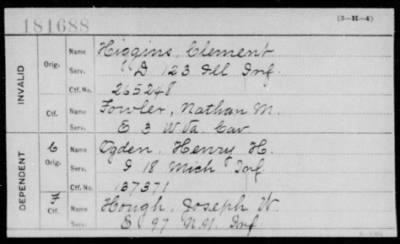 181688
(3-H-4)
INVALID
Orig.
Name Higgins, Clement
Serv. D 123 Ill Inf.
Ctf. No. 265248
Ctf.
Name Fowler, Nathan M.
Serv. E 3 W Va. Cav
DEPENDENT
C
Orig.
Name Ogden, Henry H.
Serv. I 18 Mich Inf
Ctf. No. 137371
Ctf.
Name Hough, Joseph W.
Serv. E 97 N.Y. Inf